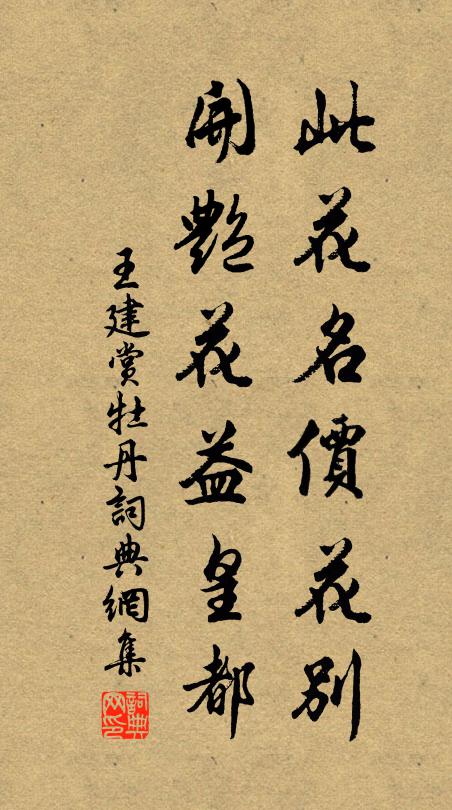 此花名價花別
開艷花益皇都
王建賞牡丹詞典網集
詞典
网印